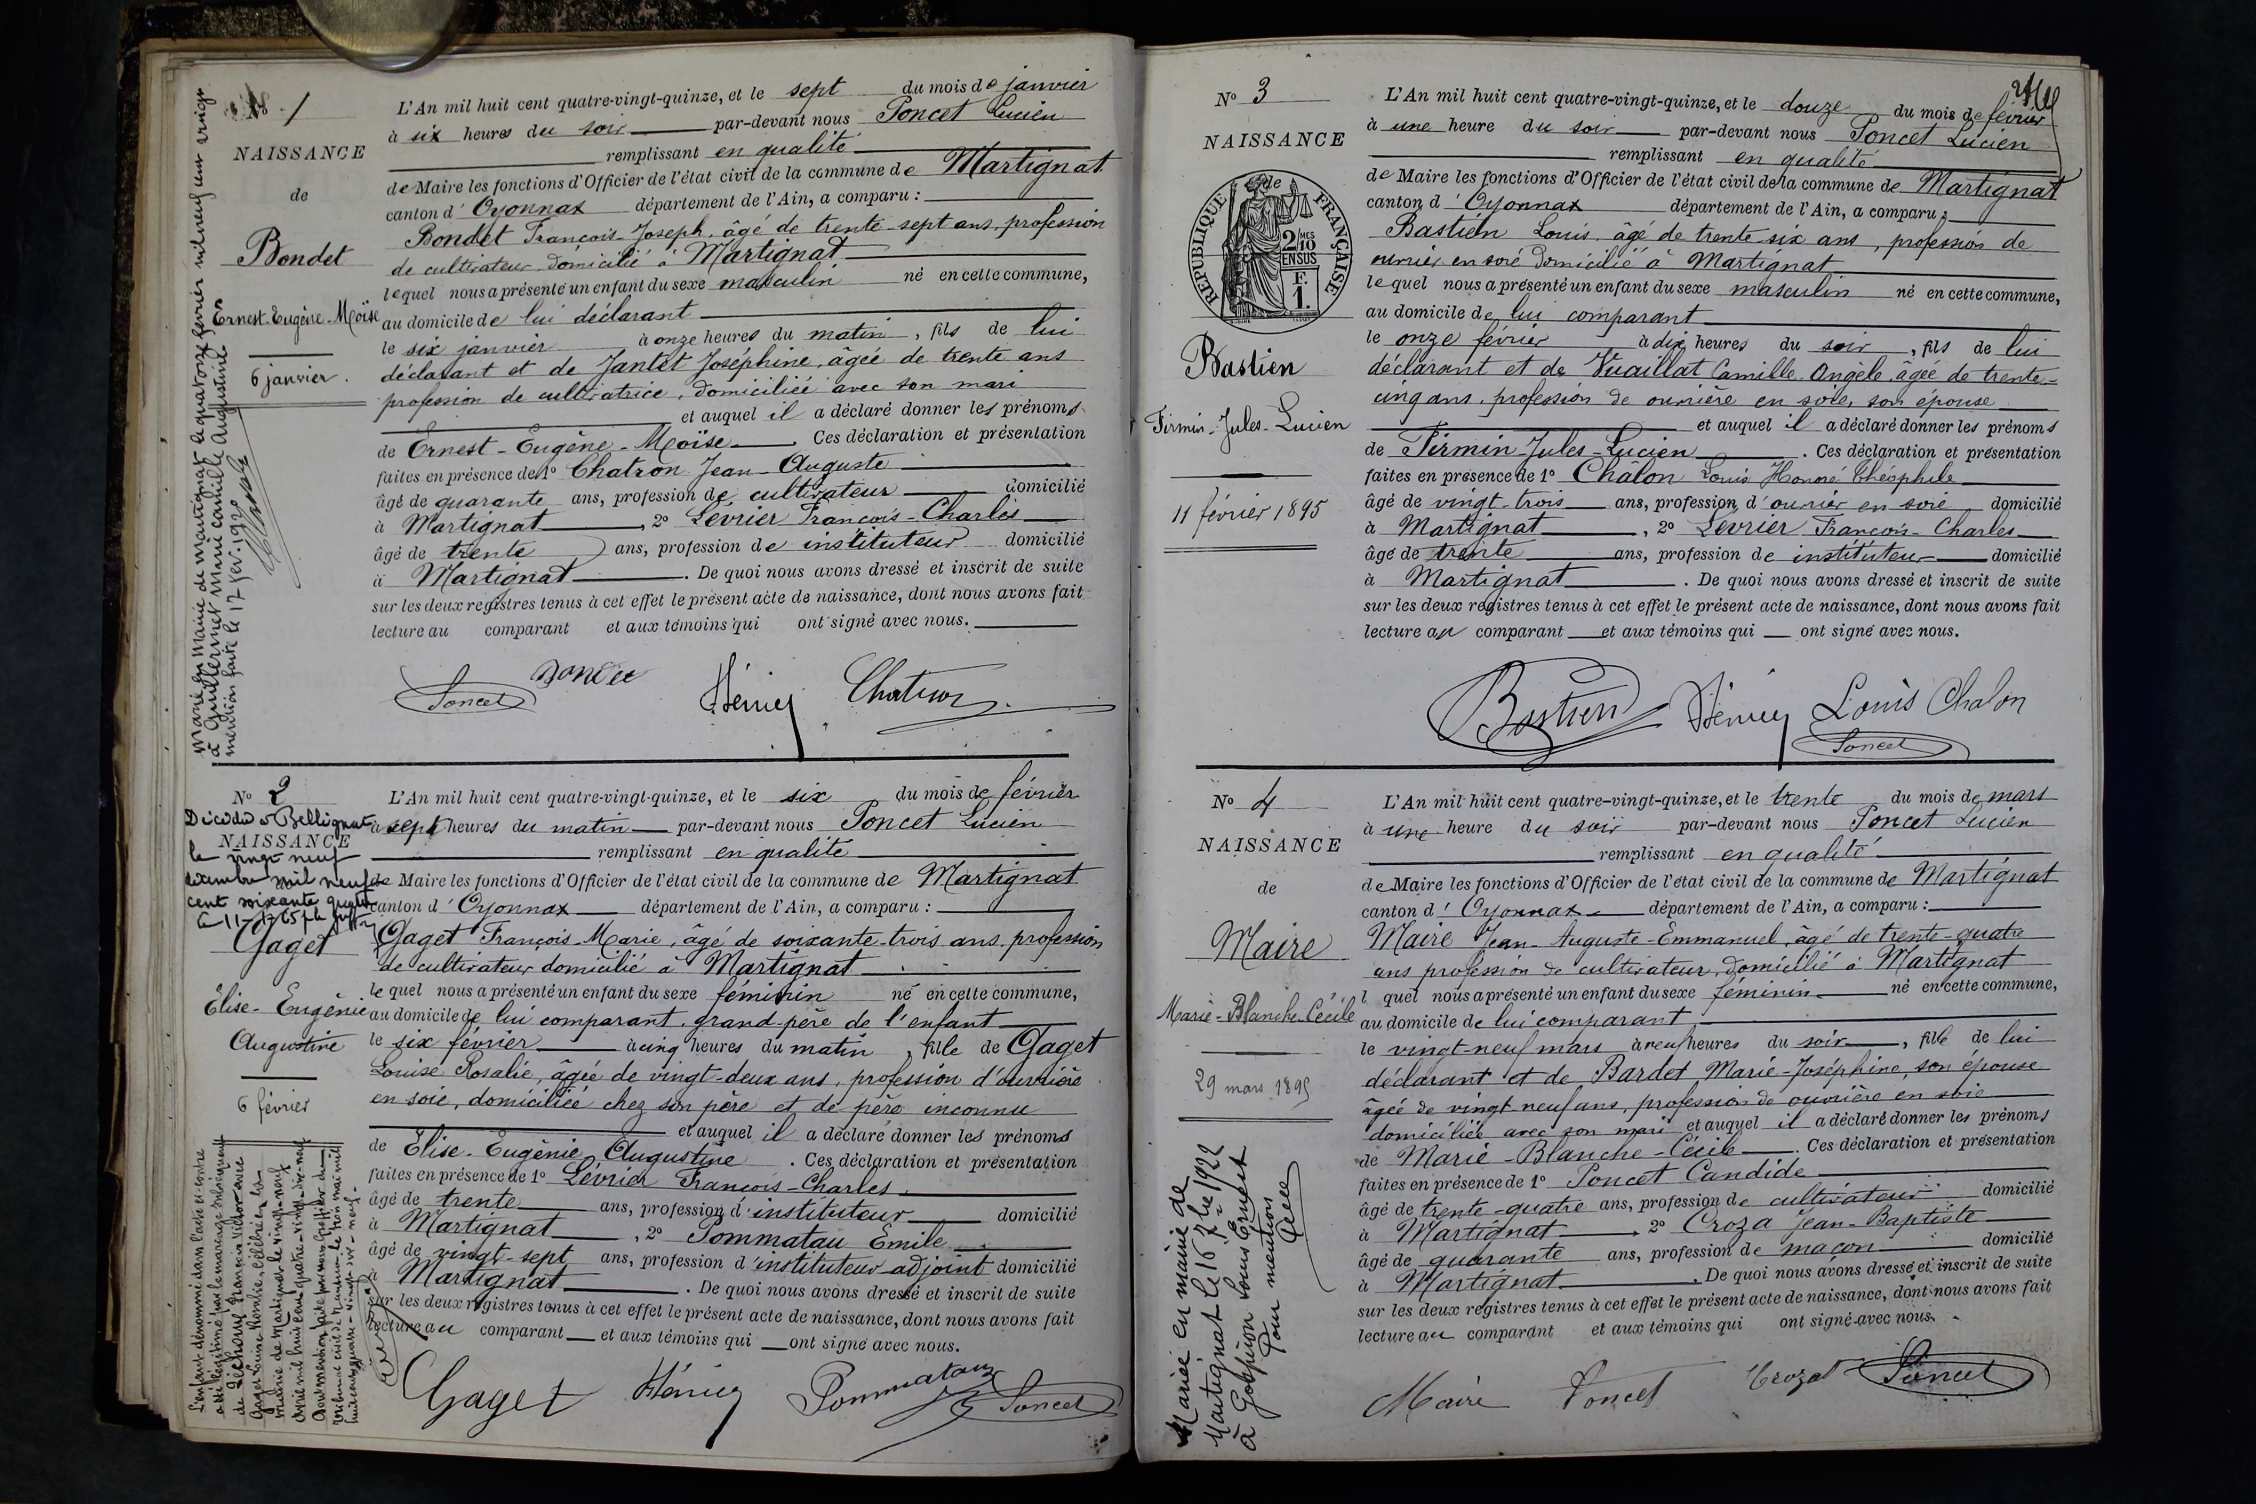 N° 1
NAISSANCE
de
Bondet
Ernest-Eugène-Moïse
6 janvier.
Marié en mairie de Martignat le quatorze février mil neuf cent vingt
à Guillermet Marie Camille Augustine
mention faite le 17 fév. 1920
L'An mil huit cent quatre-vingt-quinze, et le sept du mois de janvier
à six heures du soir par-devant nous Poncet Lucien
remplissant en qualité
de Maire les fonctions d'Officier de l'état civil de la commune de Martignat
canton d'Oyonnax département de l'Ain, a comparu :
Bondet François-Joseph, âgé de trente-sept ans, profession
de cultivateur domicilié à Martignat
lequel nous a présenté un enfant du sexe masculin né en cette commune,
au domicile de lui déclarant
le six janvier à onze heures du matin, fils de lui
déclarant et de Jantet Joséphine, âgée de trente ans
profession de cultivatrice, domiciliée avec son mari
et auquel il a déclaré donner les prénoms
de Ernest-Eugène-Moïse. Ces déclaration et présentation
faites en présence de 1° Chatron Jean-Auguste
âgé de quarante ans, profession de cultivateur domicilié
à Martignat, 2° Lévrier François-Charles
âgé de trente ans, profession de instituteur domicilié
à Martignat. De quoi nous avons dressé et inscrit de suite
sur les deux registres tenus à cet effet le présent acte de naissance, dont nous avons fait
lecture au comparant et aux témoins qui ont signé avec nous.
Poncet Bondet Chatron
N° 2
NAISSANCE
Décédée à Bellignat
le vingt neuf
décembre mil neuf
cent soixante quatre
Gaget
Elise-Eugénie
Augustine
6 février
L'enfant dénommé dans l'acte ci-contre
a été légitimé par le mariage subséquent
de Séchaud François Victor avec
Gaget Louise Rosalie, célébré en la
mairie de Martignat le vingt-neuf
avril mil huit cent quatre-vingt-dix-neuf
L'An mil huit cent quatre-vingt-quinze, et le six du mois de février
à sept heures du matin par-devant nous Poncet Lucien
remplissant en qualité
de Maire les fonctions d'Officier de l'état civil de la commune de Martignat
canton d'Oyonnax département de l'Ain, a comparu :
Gaget François-Marie, âgé de soixante-trois ans, profession
de cultivateur domicilié à Martignat
lequel nous a présenté un enfant du sexe féminin né en cette commune,
au domicile de lui comparant, grand-père de l'enfant
le six février à cinq heures du matin, fille de Gaget
Louise Rosalie, âgée de vingt-deux ans, profession d'ouvrière
en soie, domiciliée chez son père et de père inconnu
et auquel il a déclaré donner les prénoms
de Elise-Eugénie Augustine. Ces déclaration et présentation
faites en présence de 1° Lévrier François-Charles
âgé de trente ans, profession d'instituteur domicilié
à Martignat, 2° Pommatau Emile
âgé de vingt-sept ans, profession d'instituteur adjoint domicilié
à Martignat. De quoi nous avons dressé et inscrit de suite
sur les deux registres tenus à cet effet le présent acte de naissance, dont nous avons fait
lecture au comparant et aux témoins qui ont signé avec nous.
Gaget Pommatau Poncet
N° 3
NAISSANCE
de
RÉPUBLIQUE FRANÇAISE
2/10 MES
EN SUS
F.
1.
Bastien
Firmin-Jules-Lucien
11 février 1895
L'An mil huit cent quatre-vingt-quinze, et le douze du mois de février
à une heure du soir par-devant nous Poncet Lucien
remplissant en qualité
de Maire les fonctions d'Officier de l'état civil de la commune de Martignat
canton d'Oyonnax département de l'Ain, a comparu :
Bastien Louis, âgé de trente-six ans, profession de
ouvrier en soie domicilié à Martignat
lequel nous a présenté un enfant du sexe masculin né en cette commune,
au domicile de lui comparant
le onze février à dix heures du soir, fils de lui
déclarant et de Vuaillat Camille-Angele, âgée de trente-
cinq ans, profession de ouvrière en soie, son épouse
et auquel il a déclaré donner les prénoms
de Firmin-Jules-Lucien. Ces déclaration et présentation
faites en présence de 1° Châlon Louis Honoré Théophile
âgé de vingt-trois ans, profession d'ouvrier en soie domicilié
à Martignat, 2° Lévrier François-Charles
âgé de trente ans, profession de instituteur domicilié
à Martignat. De quoi nous avons dressé et inscrit de suite
sur les deux registres tenus à cet effet le présent acte de naissance, dont nous avons fait
lecture au comparant et aux témoins qui ont signé avec nous.
Bastien Louis Chalon
Poncet
N° 4
NAISSANCE
de
Maire
Marie-Blanche-Cécile
29 mars 1895
Mariée en mairie de
Martignat le 16 7bre 1922
à Louis Ernest
Pour mention
L'An mil huit cent quatre-vingt-quinze, et le trente du mois de mars
à une heure du soir par-devant nous Poncet Lucien
remplissant en qualité
de Maire les fonctions d'Officier de l'état civil de la commune de Martignat
canton d'Oyonnax département de l'Ain, a comparu :
Maire Jean-Auguste-Emmanuel, âgé de trente-quatre
ans profession de cultivateur, domicilié à Martignat
l quel nous a présenté un enfant du sexe féminin né en cette commune,
au domicile de lui comparant
le vingt-neuf mars à neuf heures du soir, fille de lui
déclarant et de Bardet Marie-Joséphine, son épouse
âgée de vingt neuf ans, profession de ouvrière en soie
domiciliée avec son mari et auquel il a déclaré donner les prénoms
de Marie-Blanche-Cécile. Ces déclaration et présentation
faites en présence de 1° Poncet Candide
âgé de trente-quatre ans, profession de cultivateur domicilié
à Martignat, 2° Croza Jean-Baptiste
âgé de quarante ans, profession de maçon domicilié
à Martignat. De quoi nous avons dressé et inscrit de suite
sur les deux registres tenus à cet effet le présent acte de naissance, dont nous avons fait
lecture au comparant et aux témoins qui ont signé avec nous.
Maire Poncet Croza Poncet